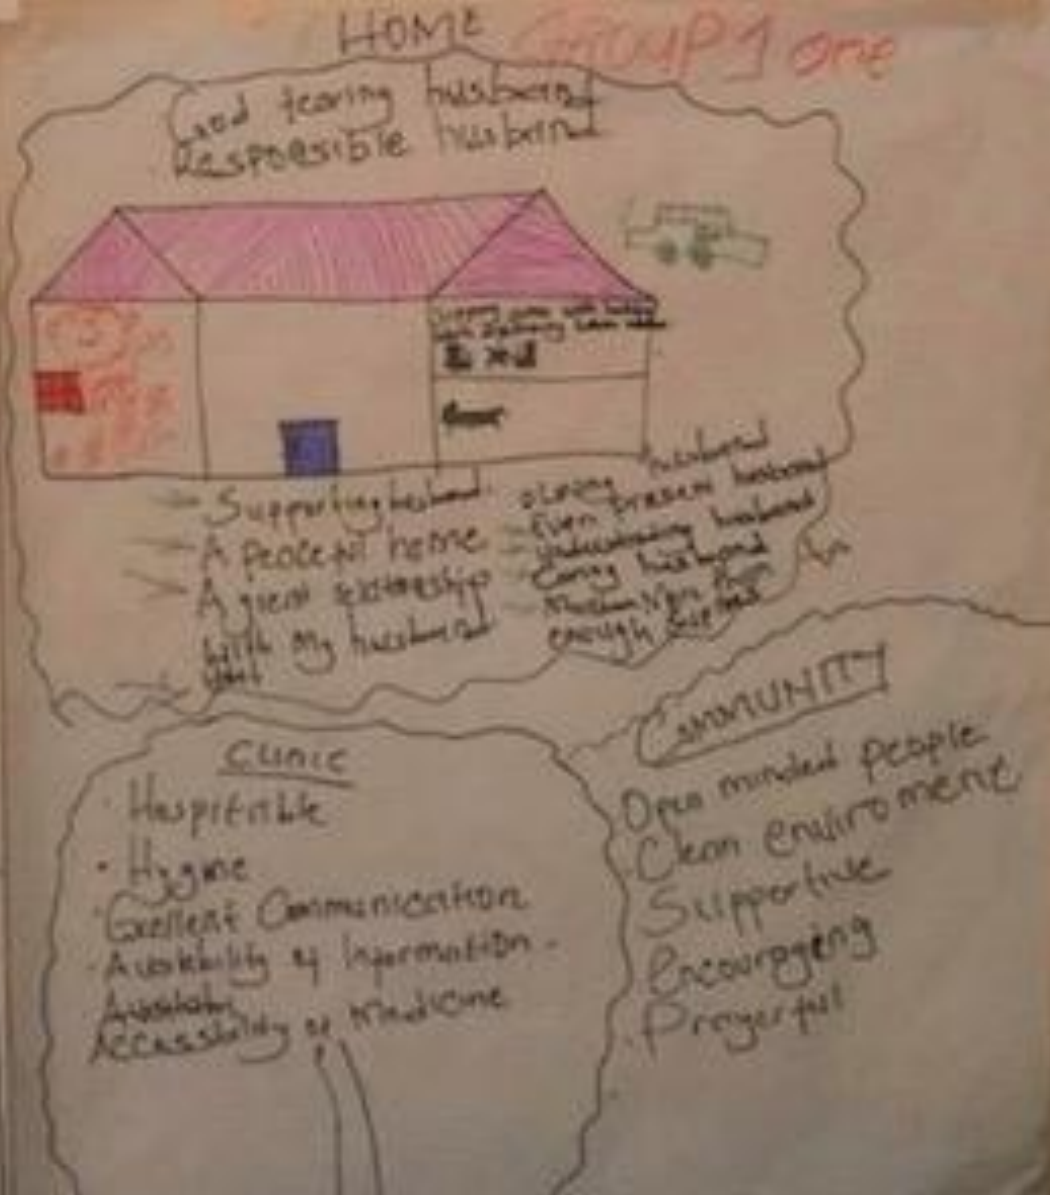 HOME
Group 1 one
God fearing husband
Responsible husband
Supporting husband
A peaceful home
A great relationship
with my husband
Loving husband
Even present husband
Understanding husband
Caring husband
enough
Clinic
Hospitable
• Hygine
Exellent Communication
Availability of Information
Accessibility of Medicine
COMMUNITY
Open minded people
Clean enviroment
Supportive
Encouraging
Prayerful